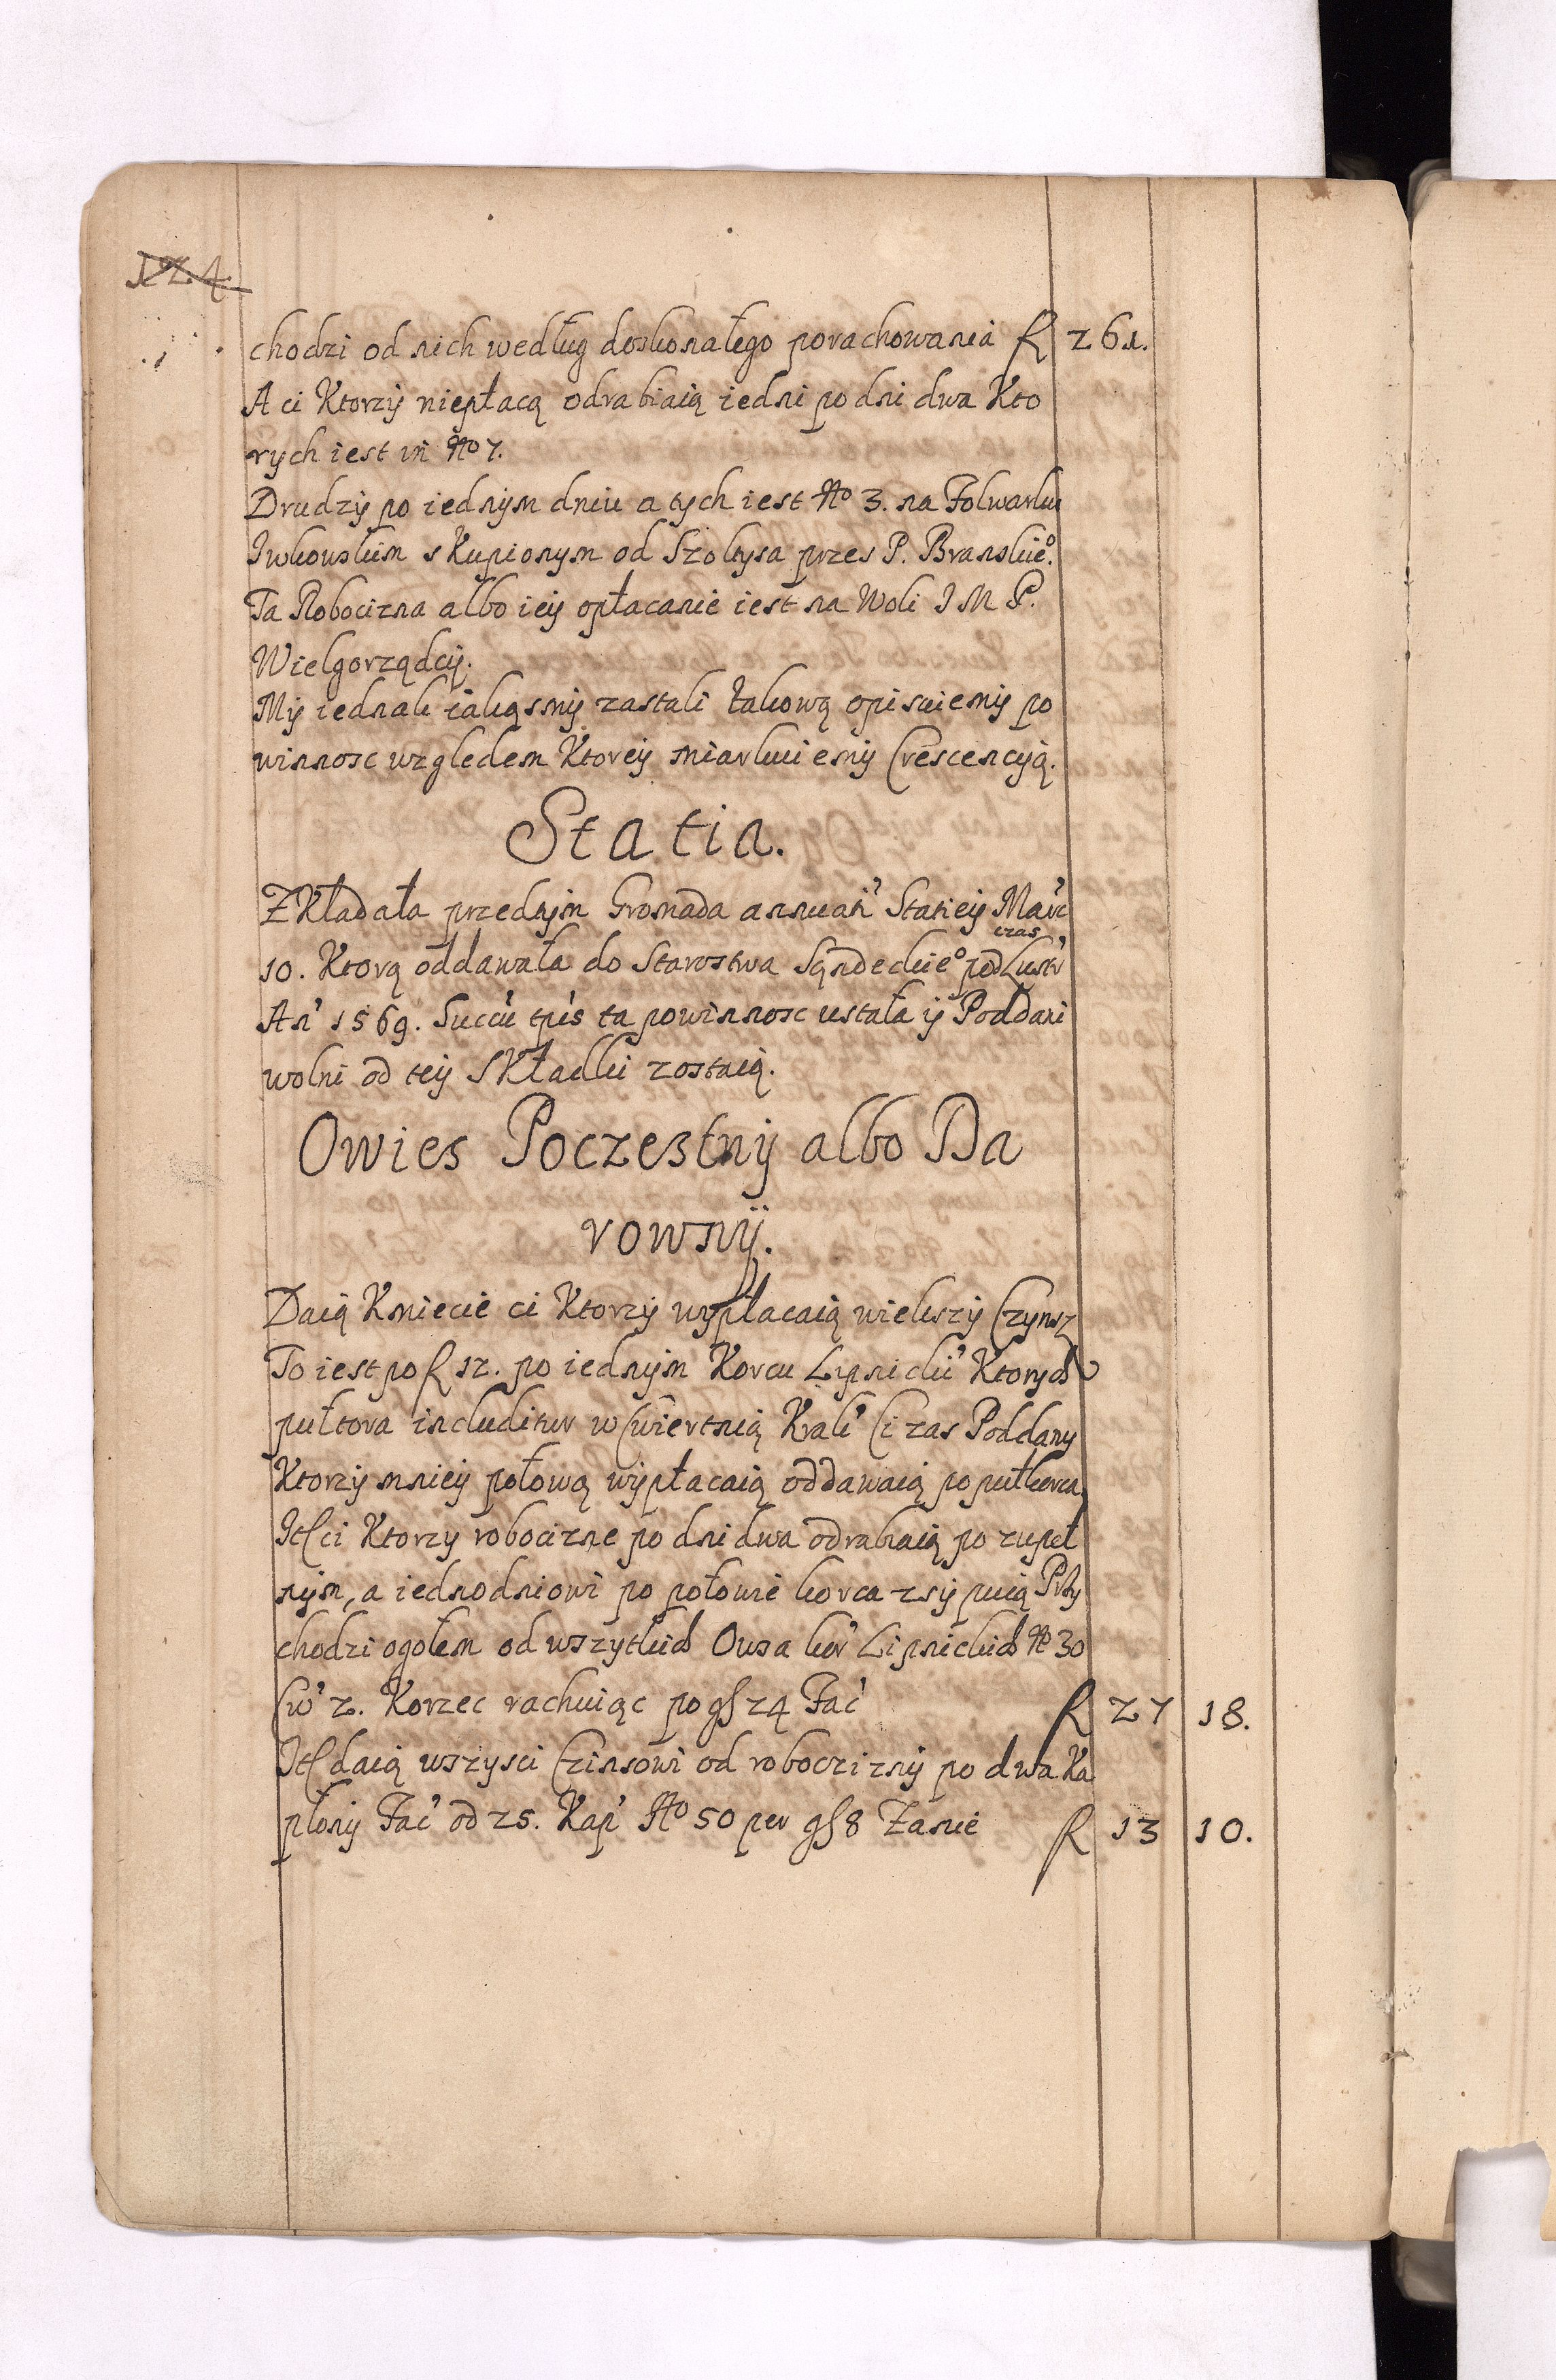 124
chodzi od nich według doskonałego porachowania f 261.
A ci Ktorzÿ niepłacą odrabiaią iedni po dni dwa Kto
rych iest in No 7.
Drudzÿ po iednÿm dniu a tych iest No 3. na Folwarku
Iwkowskim skupionym od Szoltysa przes P. Branskie°.
Ta Robocizna albo ieÿ opłacanie iest na Woli I M P.
Wielgorządcÿ.
Mÿ iednak iakąsmÿ zastali takową opisuiemÿ po
winnosc względem Ktoreÿ miarkuiemÿ Crescencÿą.
Statia.
Zkładała przedtÿm Gromada annuati' Statieÿ Marc'
10. Ktorą oddawała do Starostwa Sądeckie° pod czas Lustr'
An' 1569. Succu' tp̄is ta powinnosc ustała ÿ Poddani
wolni od teÿ Składki zostaią.
Owies Poczestnÿ albo Da
rownÿ.
Daią Kmiecie ci Ktorzÿ wÿpłacaią wiekszÿ Czynsz
To iest po f 12. po iednÿm Korcu Lipnicki' Ktorych
pułtora includitur w Cwiertnią Krak' Ci zas Poddany
Ktorzÿ mnieÿ połową wÿpłacaią oddawaią po pułkorca
It ci Ktorzy robocizne po dni dwa odrabiaią po zupeł
nÿm, a iednodniowi po połowie korca zsÿpuią Przy
chodzi ogołem od wszytkich Owsa kor' Lipnickich No 30
Cw' 2. Korzec rachuiąc po gs 24 Fac' f 27 18.
It daią wszysci Czinsowi od robocziznÿ po dwa Ka
płonÿ Fac' od 25. Kap' No 50 per gs 8 Zanie f 13 10.